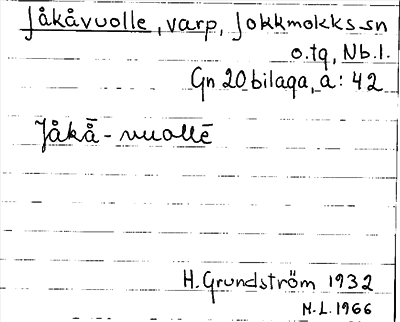 Jåkåvuolle, varp, Jokkmokks sn
o.tg, Nb.l.
Gn 20 bilaga, a: 42
Jåkā̊-vuollē
H. Grundström 1932
N.L. 1966